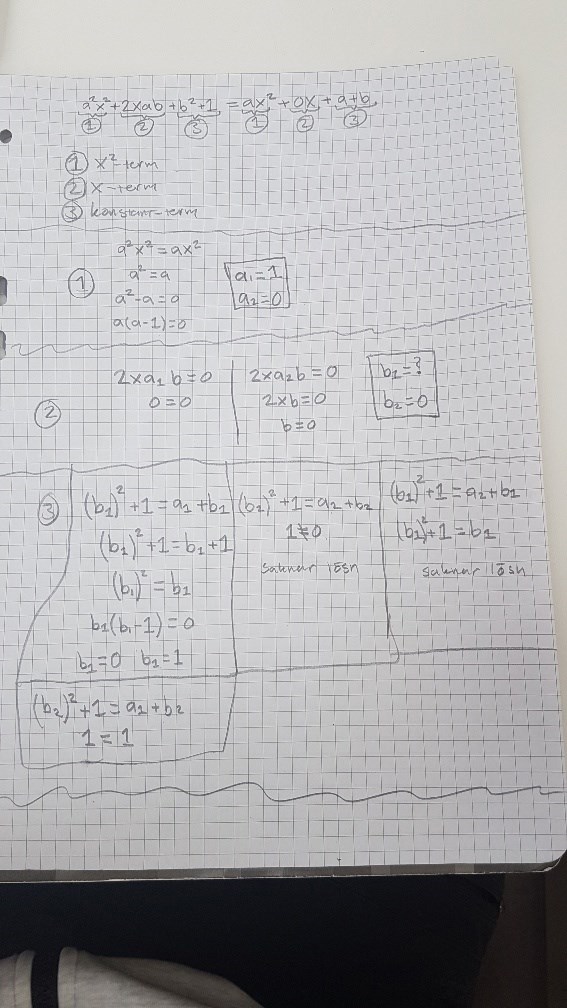 a²x²+2xab+b²+1 = ax²+0x+a+b
① ② ③ ① ② ③
① x²-term
② x-term
③ konstant-term
①
a²x²=ax²
a²=a
a²-a=0
a(a-1)=0
a₁=1
a₂=0
②
2xa₁b=0
0=0
2xa₂b=0
2xb=0
b=0
b₁=?
b₂=0
③
(b₁)²+1=a₁+b₁
(b₁)²+1=b₁+1
(b₁)²=b₁
b₁(b₁-1)=0
b₁=0 b₁=1
(b₂)²+1=a₂+b₂
1≠0
saknar lösn
(b₁)²+1=a₂+b₁
(b₁)²+1=b₁
saknar lösn
(b₂)²+1=a₁+b₂
1=1